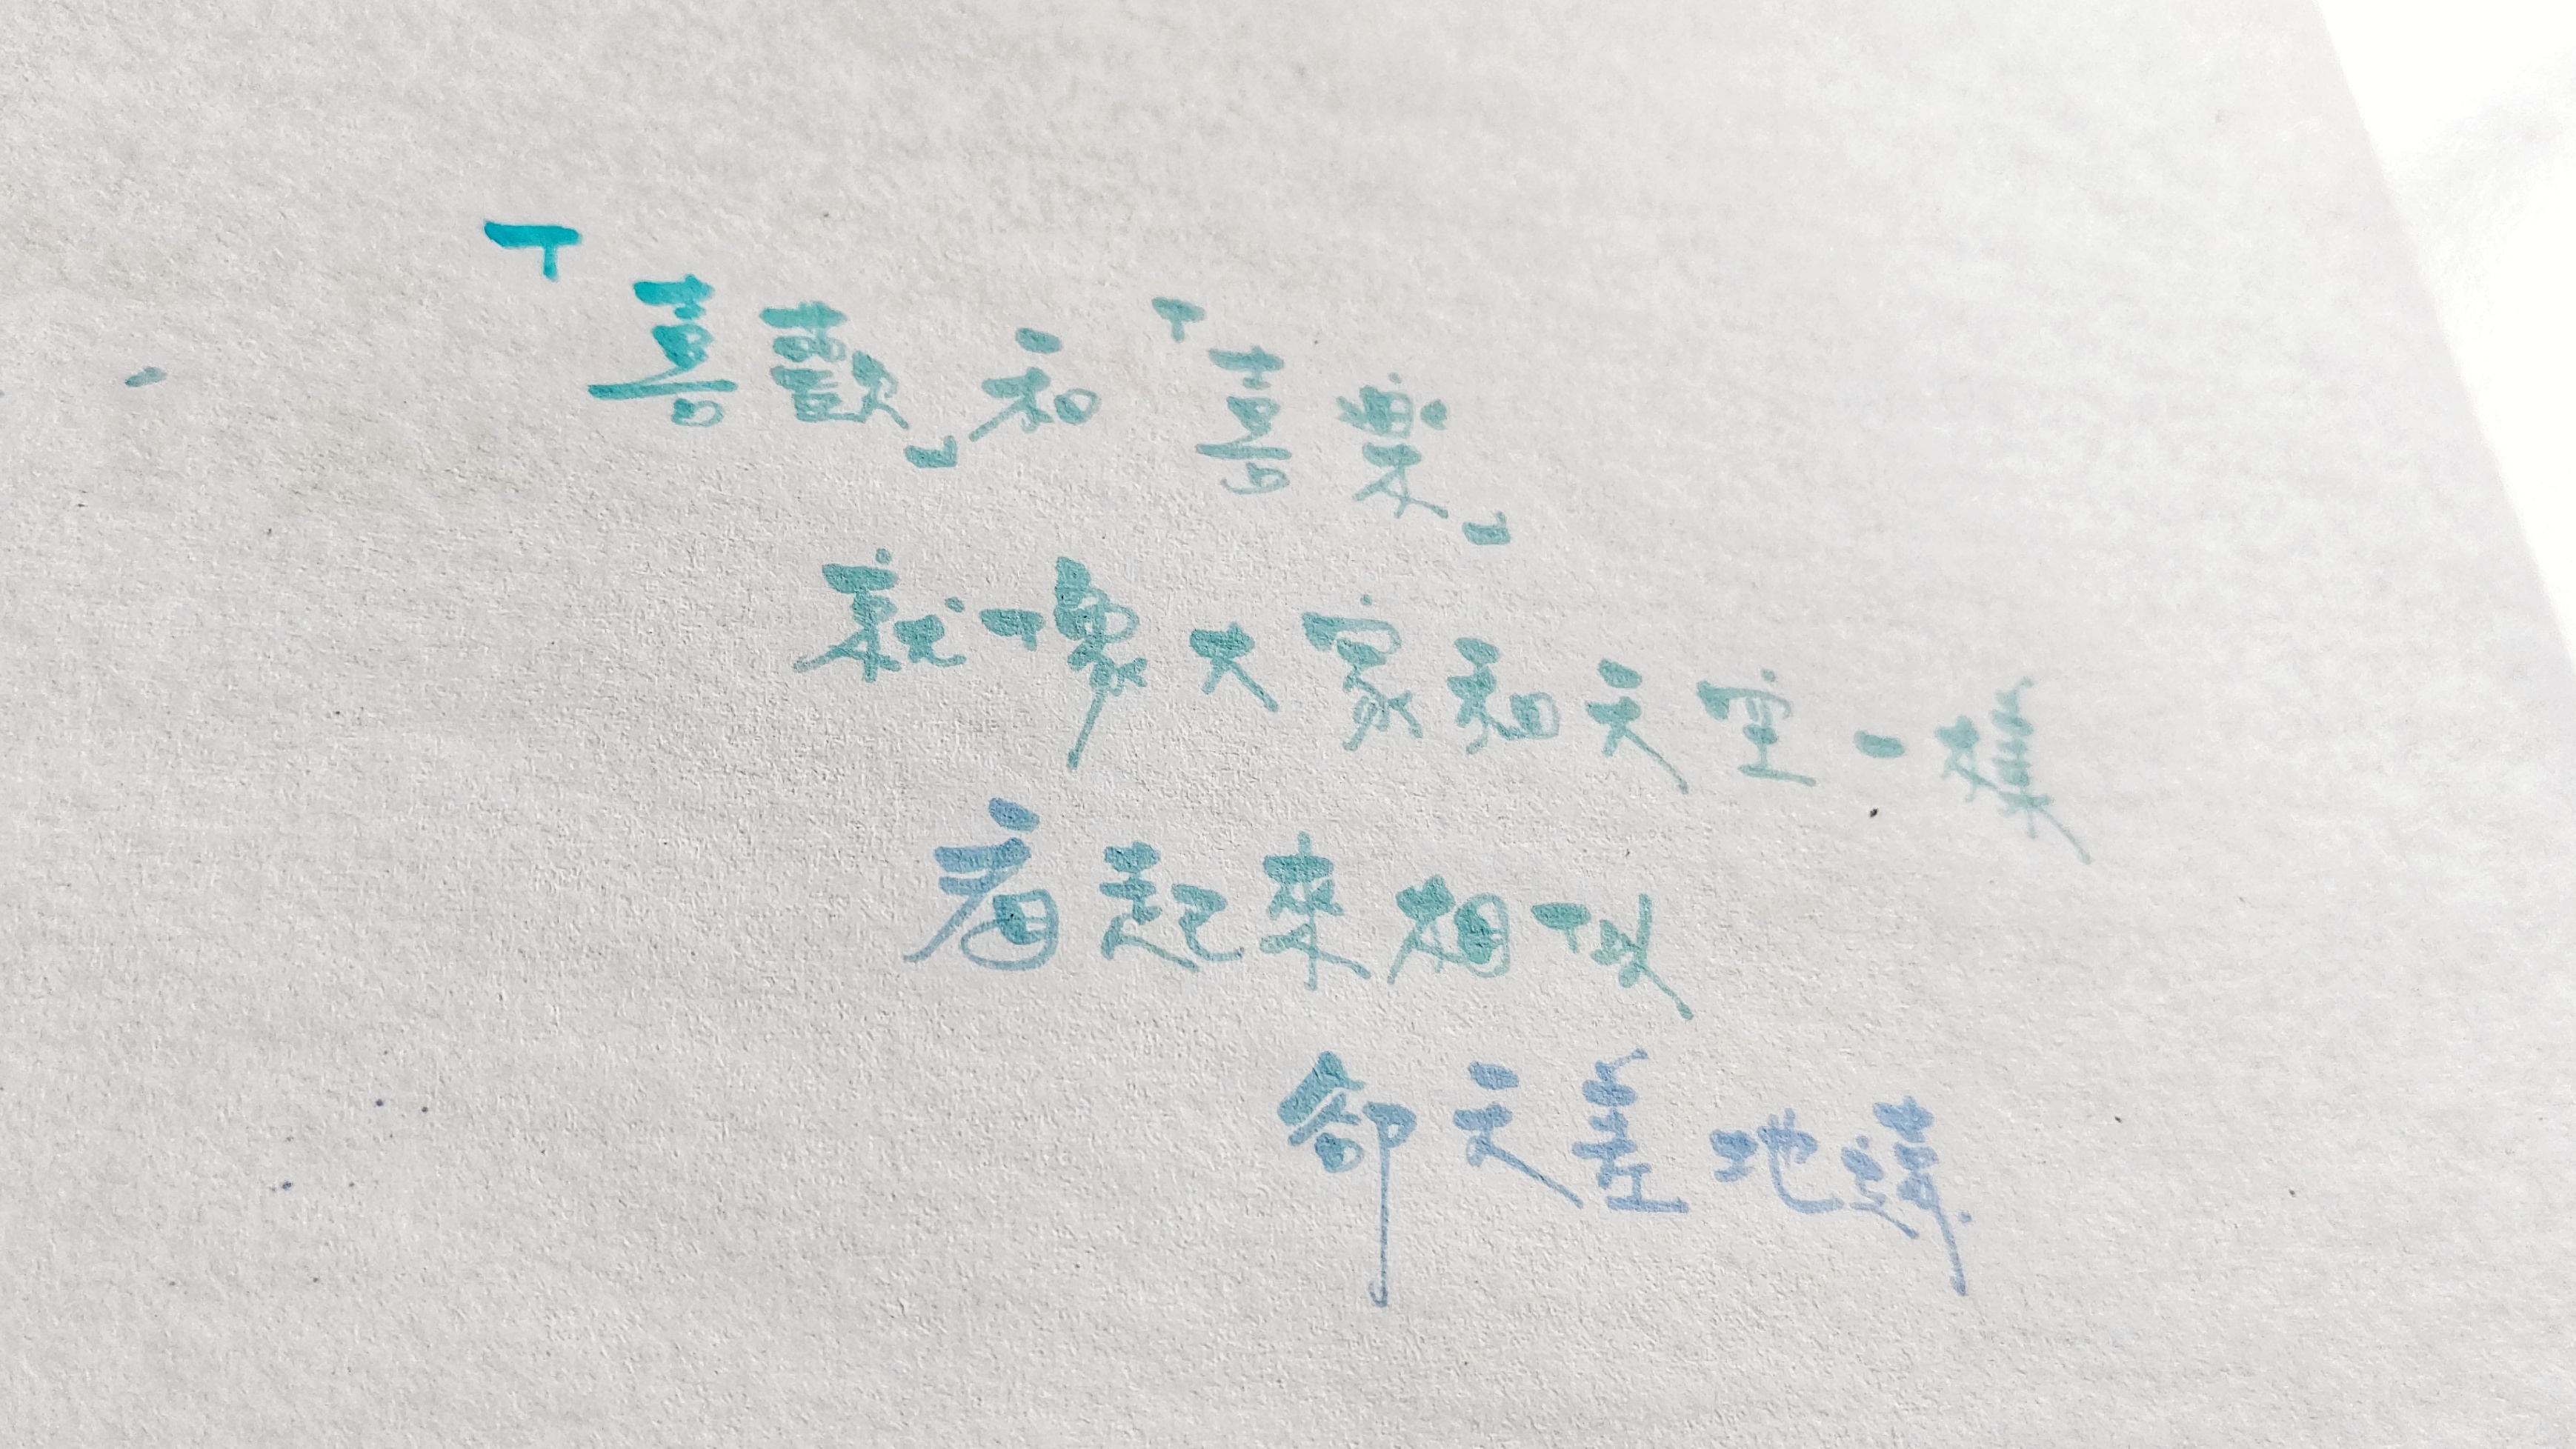 「喜歡」和「喜樂」
就像大家和天空一樣
看起來相似
卻天差地遠